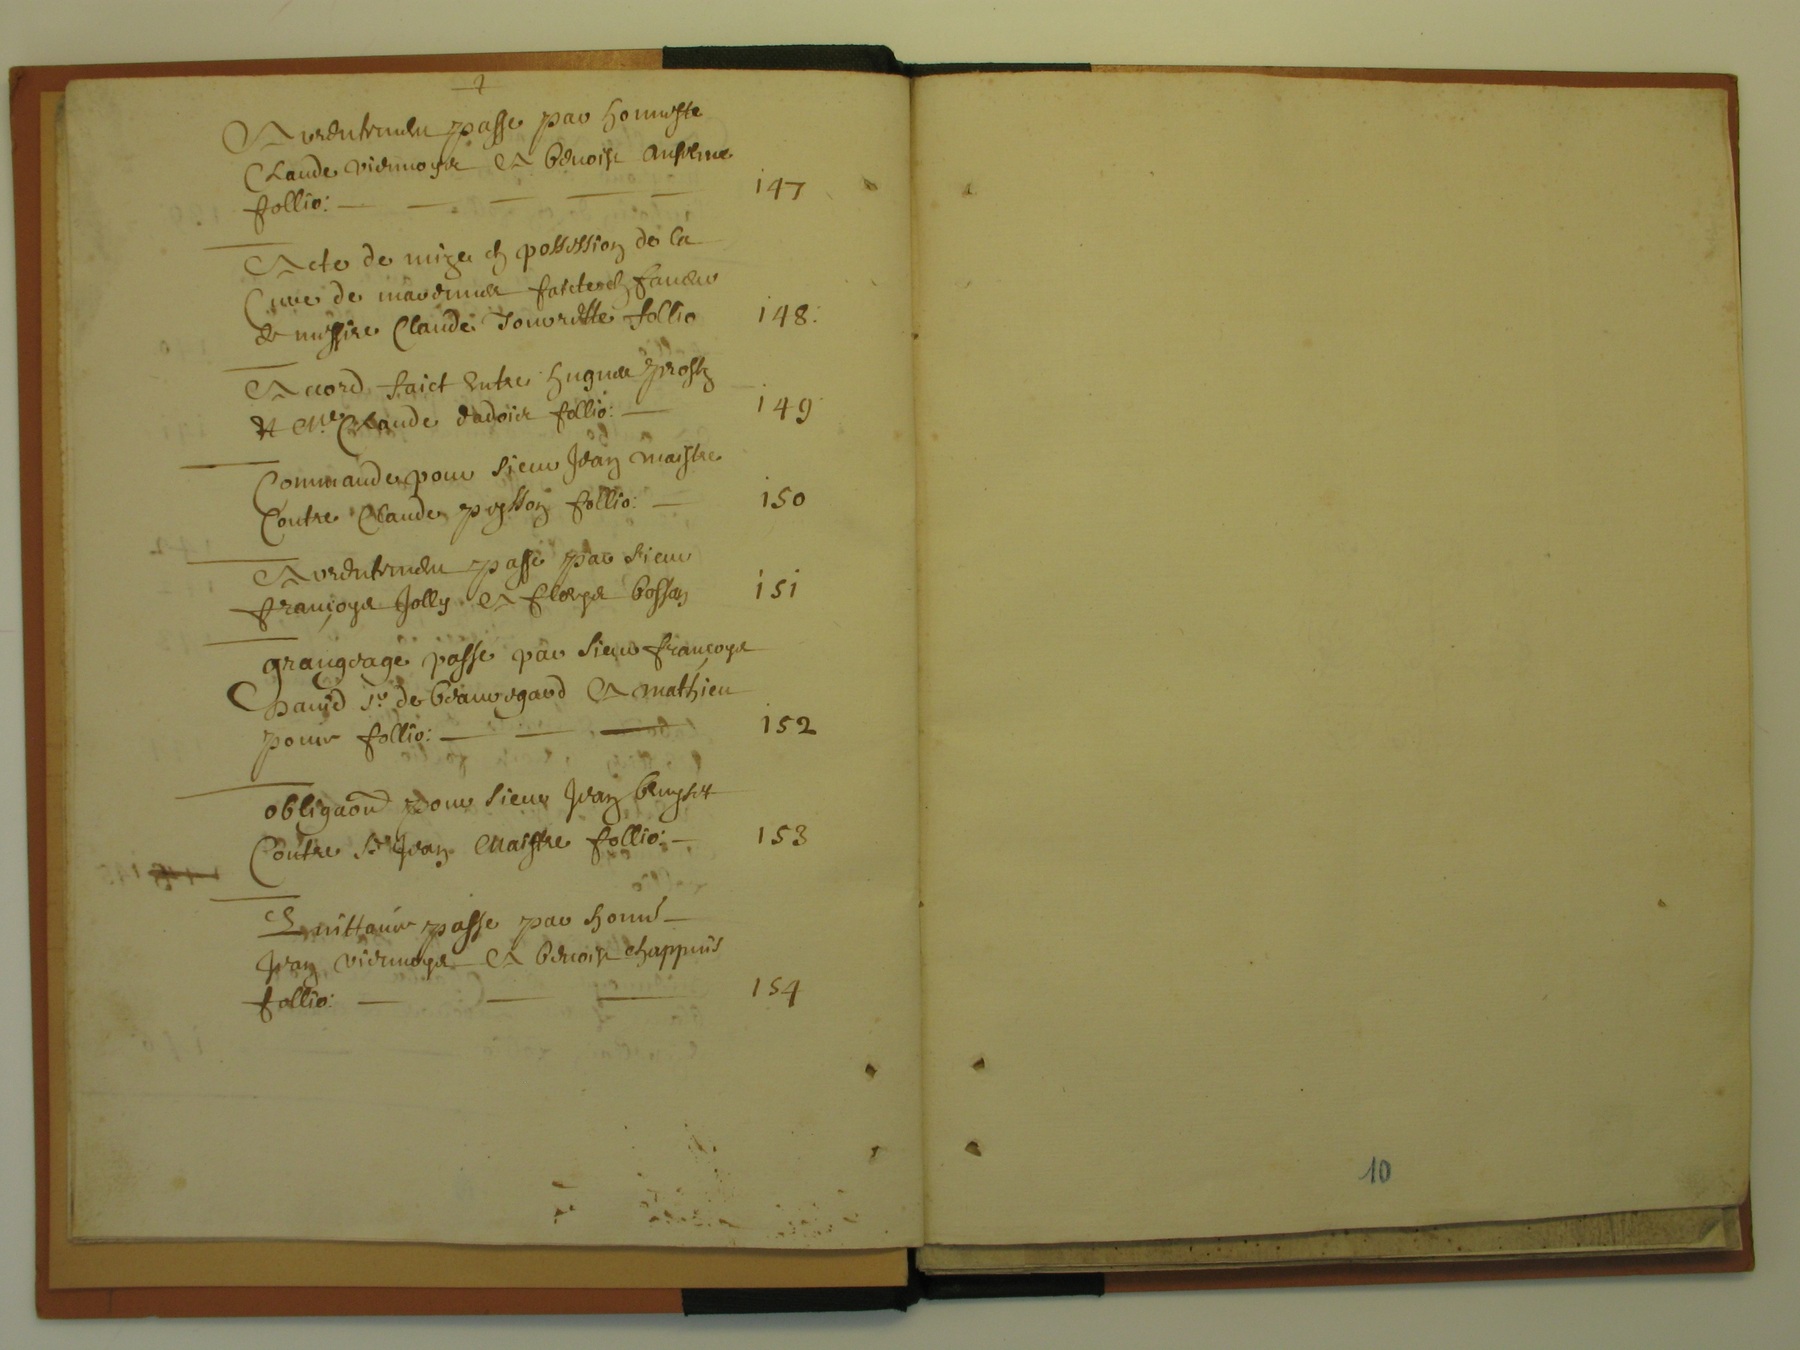 Arrentemen passe par honneste
Claude viennoys A benoist Anselme
follio: 147
Acte de mize en possession de la
Cure de faicte en faueur
de messire Claude follio 148:
Accord faict Entre hugues
et Me Claude follio: 149
Commande pour sieur Jean maistre
Contre Claude follio: 150
Arrentemen passe par sieur
françoys Jolly A 151
grangeage passe par sieur françoys
sr de beauregard A mathieu
follio: 152
obligaõn pour sieur Jean
Contre Sr Jean Maistre follio: 153
Quittance passe par honn
Jean viennoys A benoist chappuis
follio: 154
10